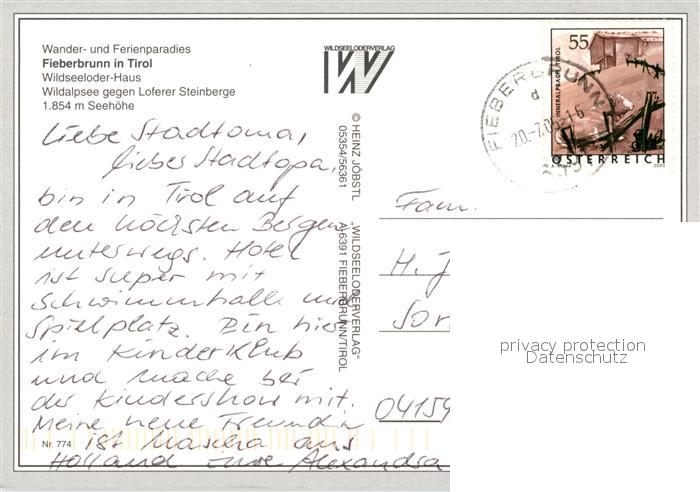 Wander- und Ferienparadies
Fieberbrunn in Tirol
Wildseeloder-Haus
Wildalpsee gegen Loferer Steinberge
1.854 m Seehöhe
Liebe Stadtoma,
liebes Stadtopa,
bin in Tirol auf
den höchsten Bergen
unterwegs. Hotel
ist super mit
Schwimmhalle und
Spielplatz. Bin hier
im Kinderklub
und mache bei
der Kindershow mit.
Meine neue Freundin
ist Mascha aus
Holland Eure Alexandra
Nr. 774
WILDSEELODERVERLAG
W
© HEINZ JÖBSTL
05354/56361
„WILDSEELODERVERLAG"
A-6391 FIEBERBRUNN/TIROL
FIEBERBRUNN
d
55
INNERALPBACH, TIROL
ÖSTERREICH
Fam.
H. J
04159
privacy protection
Datenschutz